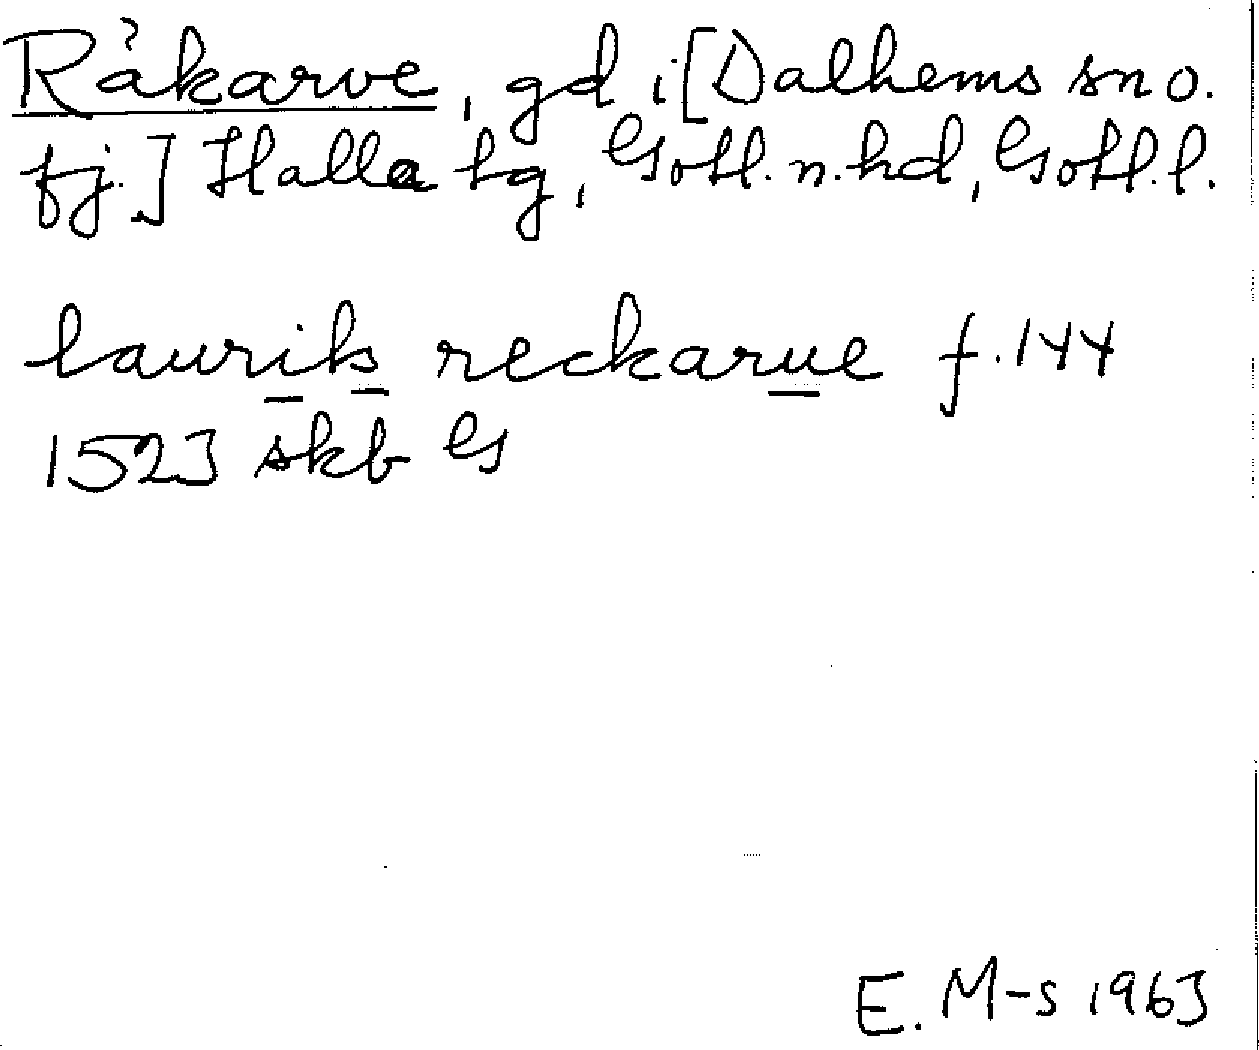 Råkarve, gd i [Dalhems sn o.
fj.] Halla tg, Gotl. n. hd, Gotl. l.
lauriks reckarue f. 144
1523 skb G
E. M-s 1963